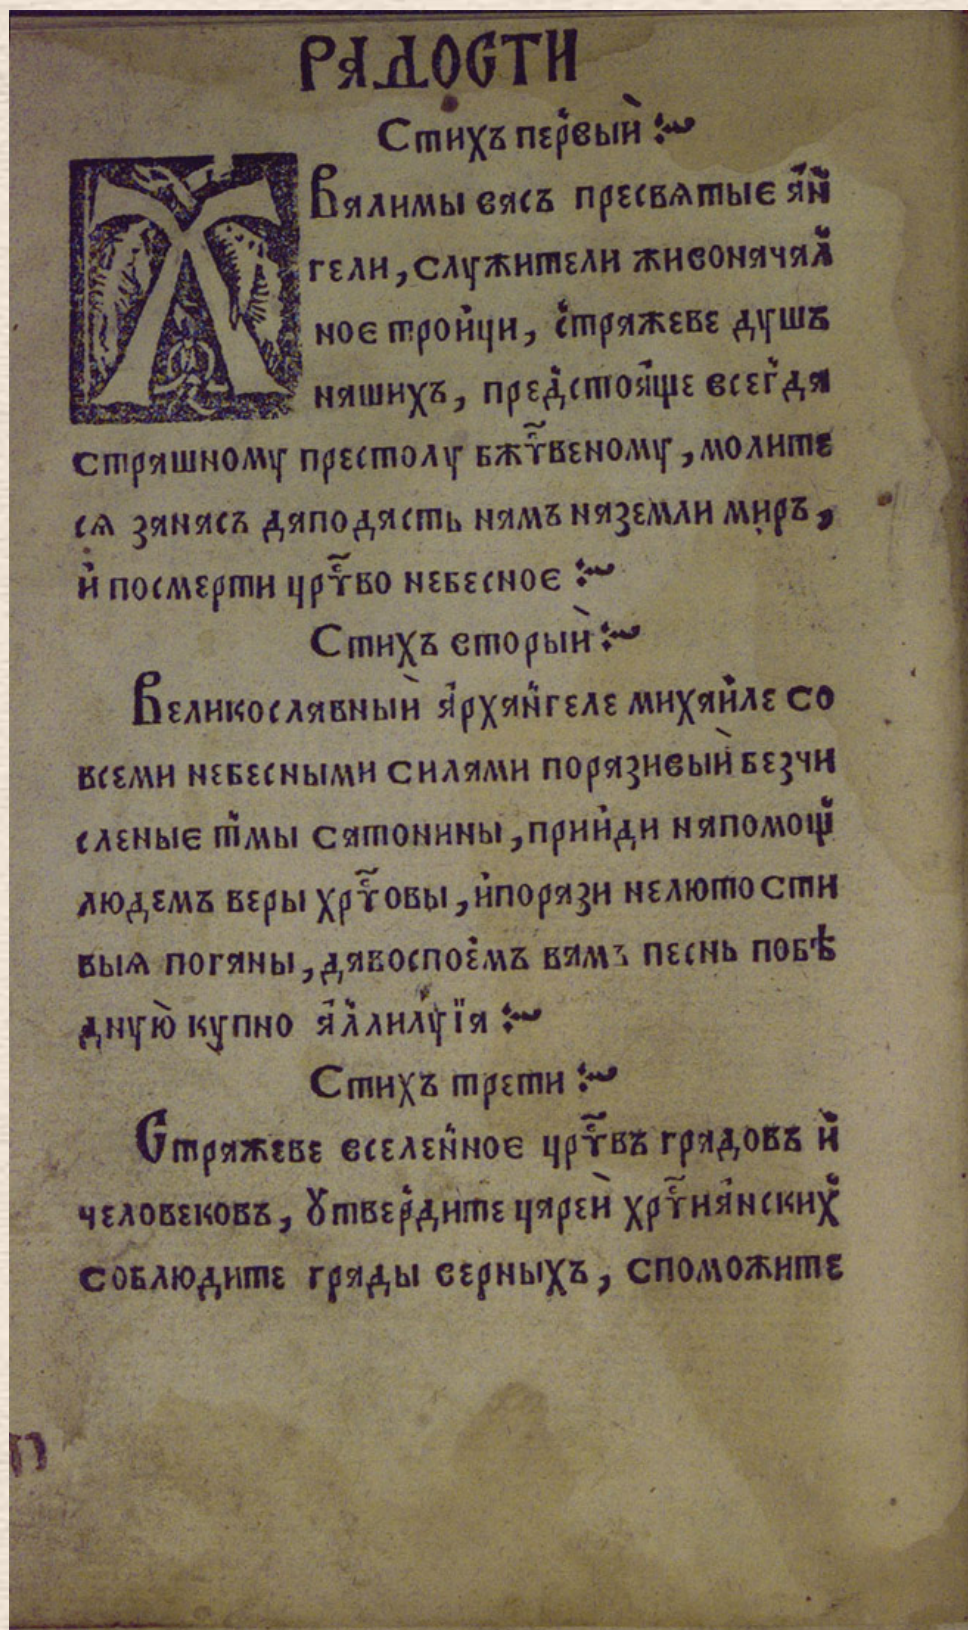 РАДОСТИ
Стихъ пе́рвый
Ввалимы васъ пресвѧтыє а҆́н
гели, служители живоначал
ноє трои҆ци, стражеве душъ
нашихъ, пред̾стоѧ́ще все́гда
страшному престолу бжⷭ҇твеному, молите
сѧ занасъ даподасть намъ наземли миръ,
и҆ посмерти црⷭ҇тво небесноє
Стихъ вторыѝ
Великославныѝ а҆́рха́нгеле михаи҆ле со
всеми небесными силами поразивыѝ безчи
сленыє тмы сатонины, прии҆ди напомощ
людемъ веры хрⷭ҇товы, и҆порази нелютости
выѧ поганы, давоспое҆мъ вамъ песнь побѣ
дную̀ купно а҆́ллилуїа
Стихъ трети
Стражеве вселе́нноє црⷭ҇твъ градовъ и҆
человековъ, Ꙋтве́рдите цареѝ хрⷭ҇тиа҆нских
соблюдите грады верныхъ, споможите